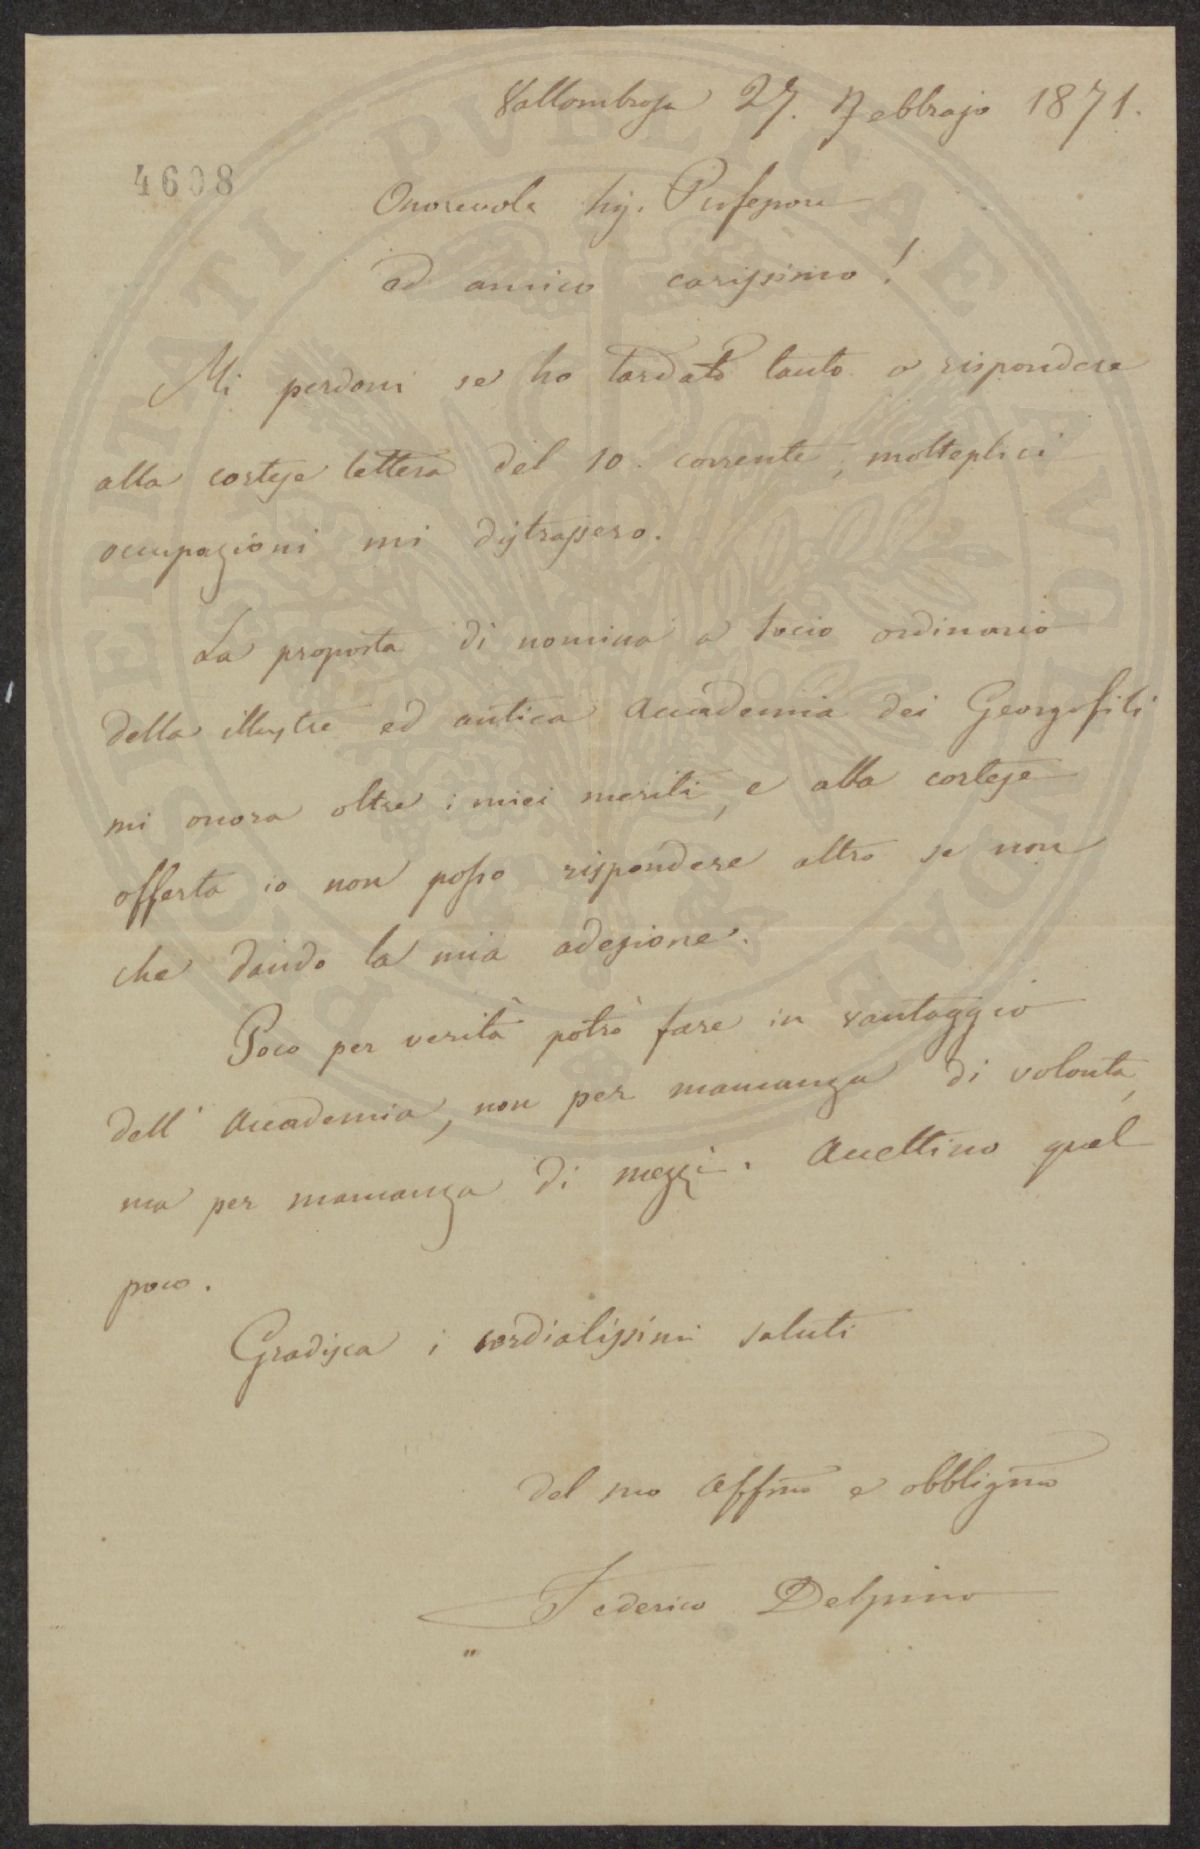 Vallombrosa 27. Febbrajo 1871.
4608
Onorevole Sig. Professore
ed amico carissimo!
Mi perdoni se ho tardato tanto a rispondere
alla cortese lettera del 10. corrente; molteplici
occupazioni mi distrassero.
La proposta di nomina a Socio ordinario
della illustre ed antica Accademia dei Georgofili
mi onora oltre i miei meriti, e alla cortese
offerta io non posso rispondere altro se non
che dando la mia adesione.
Poco per verità potrò fare in vantaggio
dell'Accademia, non per mancanza di volontà,
ma per mancanza di mezzi. Accettino quel
poco.
Gradisca i cordialissimi saluti
del suo Affmo e obbligmo
Federico Delpino
PROSPERITATI PVBLICAE AVGENDAE